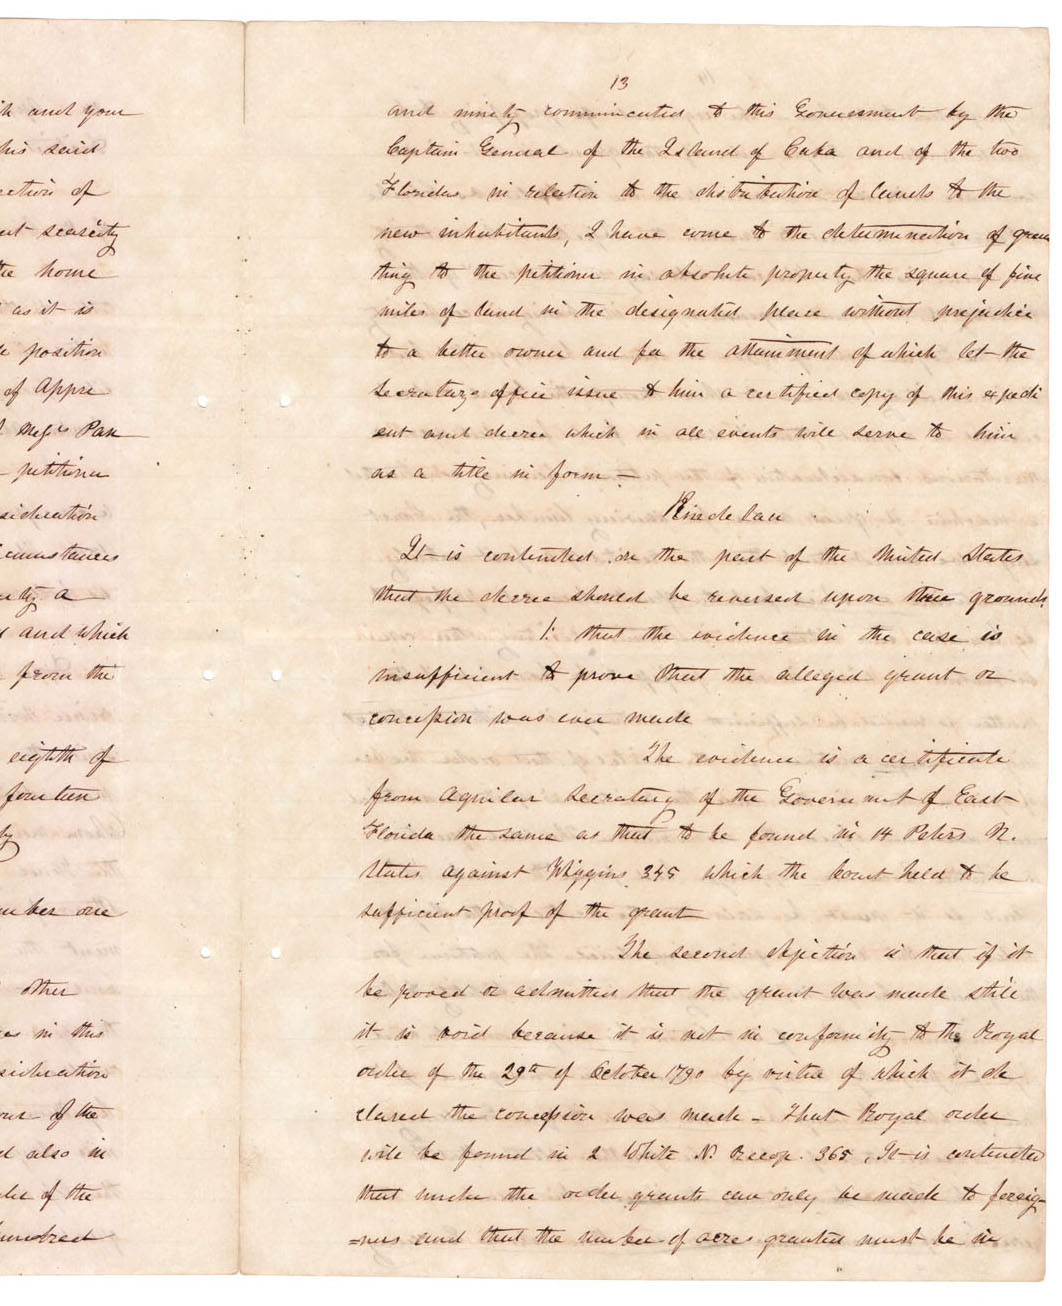 th and your
his said
ction of
at scarcity
the home
as it is
position
of Appre
Pan
petitioner
sideration
cumstances
a
and which
from the
eighth of
fourteen
ty
mber one
other
es in this
sideration
our of the
d also in
of the
hundred
13
and ninety communicated to this Government by the
Captain General of the Island of Cuba and of the two
Floridas in relation to the distribution of lands to the
new inhabitants, I have come to the determination of gran
ting to the petitioner in absolute property the square of five
miles of land in the designated place without prejudice
to a better owner and for the attainment of which let the
Secretarys office issue to him a certified copy of this expedi
ent and decree which in all events will serve to him
as a title in form —
Kindelan
It is contended on the part of the United States
that the decree should be reversed upon three grounds
1: that the evidence in the case is
insufficient to prove that the alleged grant or
concession was ever made
The evidence is a certificate
from Aguilar Secretary of the Government of East
Florida the same as that to be found in 14 Peters U.
States against Wiggins 345 which the Court held to be
sufficient proof of the grant
The second objection is that if it
be proved or admitted that the grant was made still
it is void because it is not in conformity to the Royal
order of the 29th of October 1790 by virtue of which it de
clared the concession was made - That Royal order
will be found in 2 White N. Recop. 365, It is contended
that under the order grants can only be made to foreig-
=ners and that the number of acres granted must be in